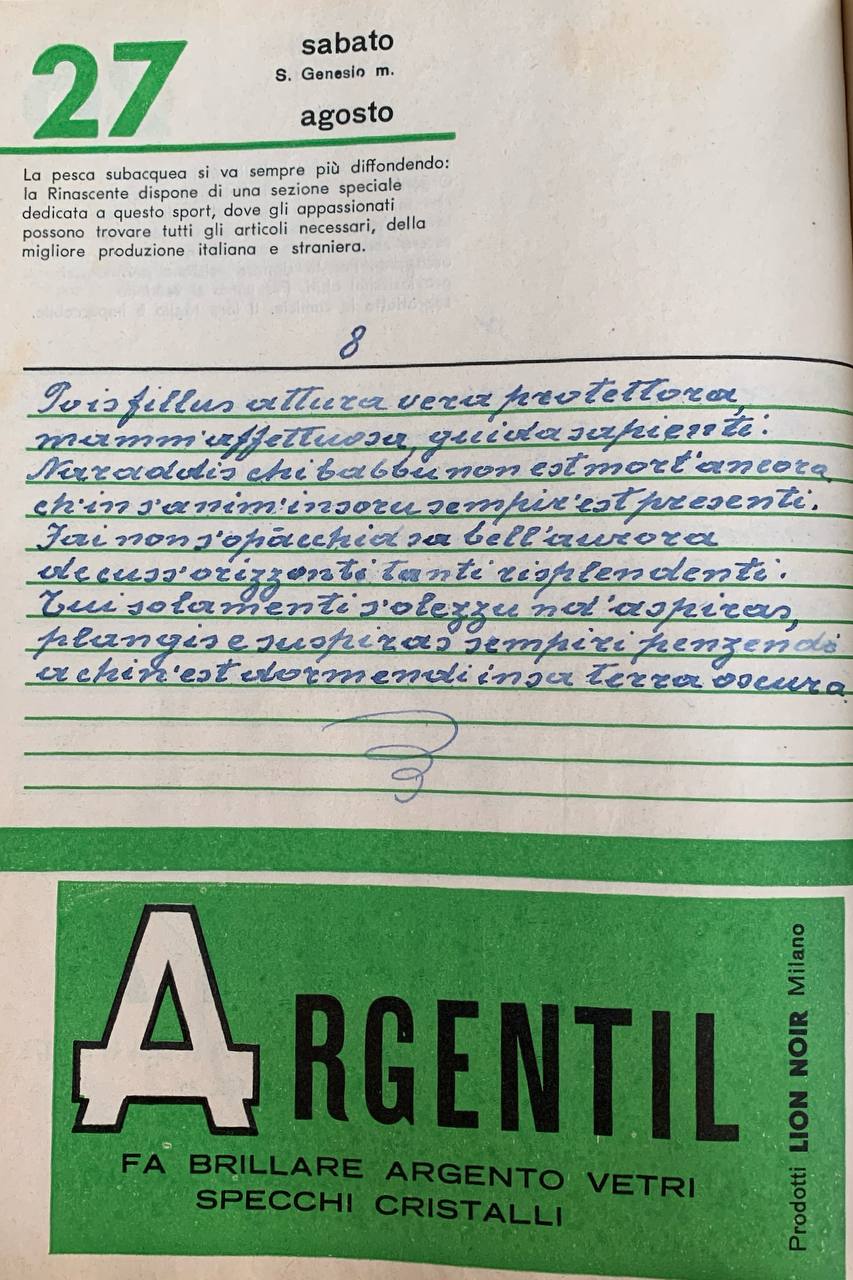 27
sabato
S. Genesio m.
agosto
La pesca subacquea si va sempre più diffondendo:
la Rinascente dispone di una sezione speciale
dedicata a questo sport, dove gli appassionati
possono trovare tutti gli articoli necessari, della
migliore produzione italiana e straniera.
8
Po is fillus attura vera protettora,
mamm'affettuosa, guida sapienti:
Naraddis chi babbu non est mort'ancora,
ch'in s'anim'insoru sempir'est presenti.
Fai non s'opācchid sa bell'aurora
de cuss'orizzonti tanti risplendenti.
Tui solamenti s'olezzu nd'aspiras,
plangis e suspiras sempiri penzendi
a chin'est dormendi in sa terra oscura
ARGENTIL
FA BRILLARE ARGENTO VETRI
SPECCHI CRISTALLI
Prodotti LION NOIR Milano